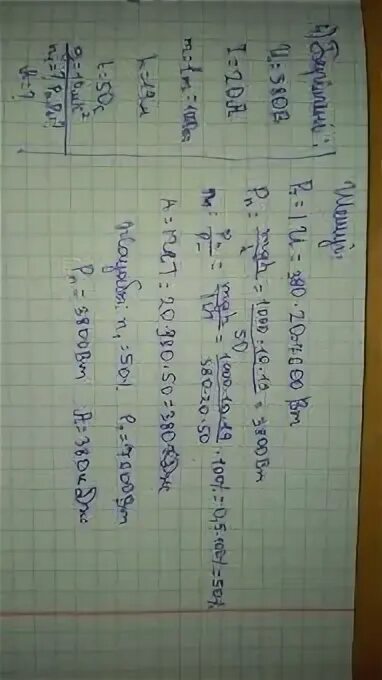 4) Берілгені:
U = 380В
I = 20А
m = 1т = 1000кг
h = 19м
t = 50с
g = 10м/с²
η - ? P - ?
A - ?
Шешуі:
P = IU = 380 · 20 = 7600 Вт
Pп = mgh/t = 1000·10·19/50 = 3800Вт
η = Pп/P = mgh/IUt = 1000·10·19/380·20·50 · 100% = 0,5·100% = 50%
A = IUt = 20·380·50 = 380кДж
Жауабы: η = 50% P = 7600Вт
Pп = 3800Вт A = 380кДж